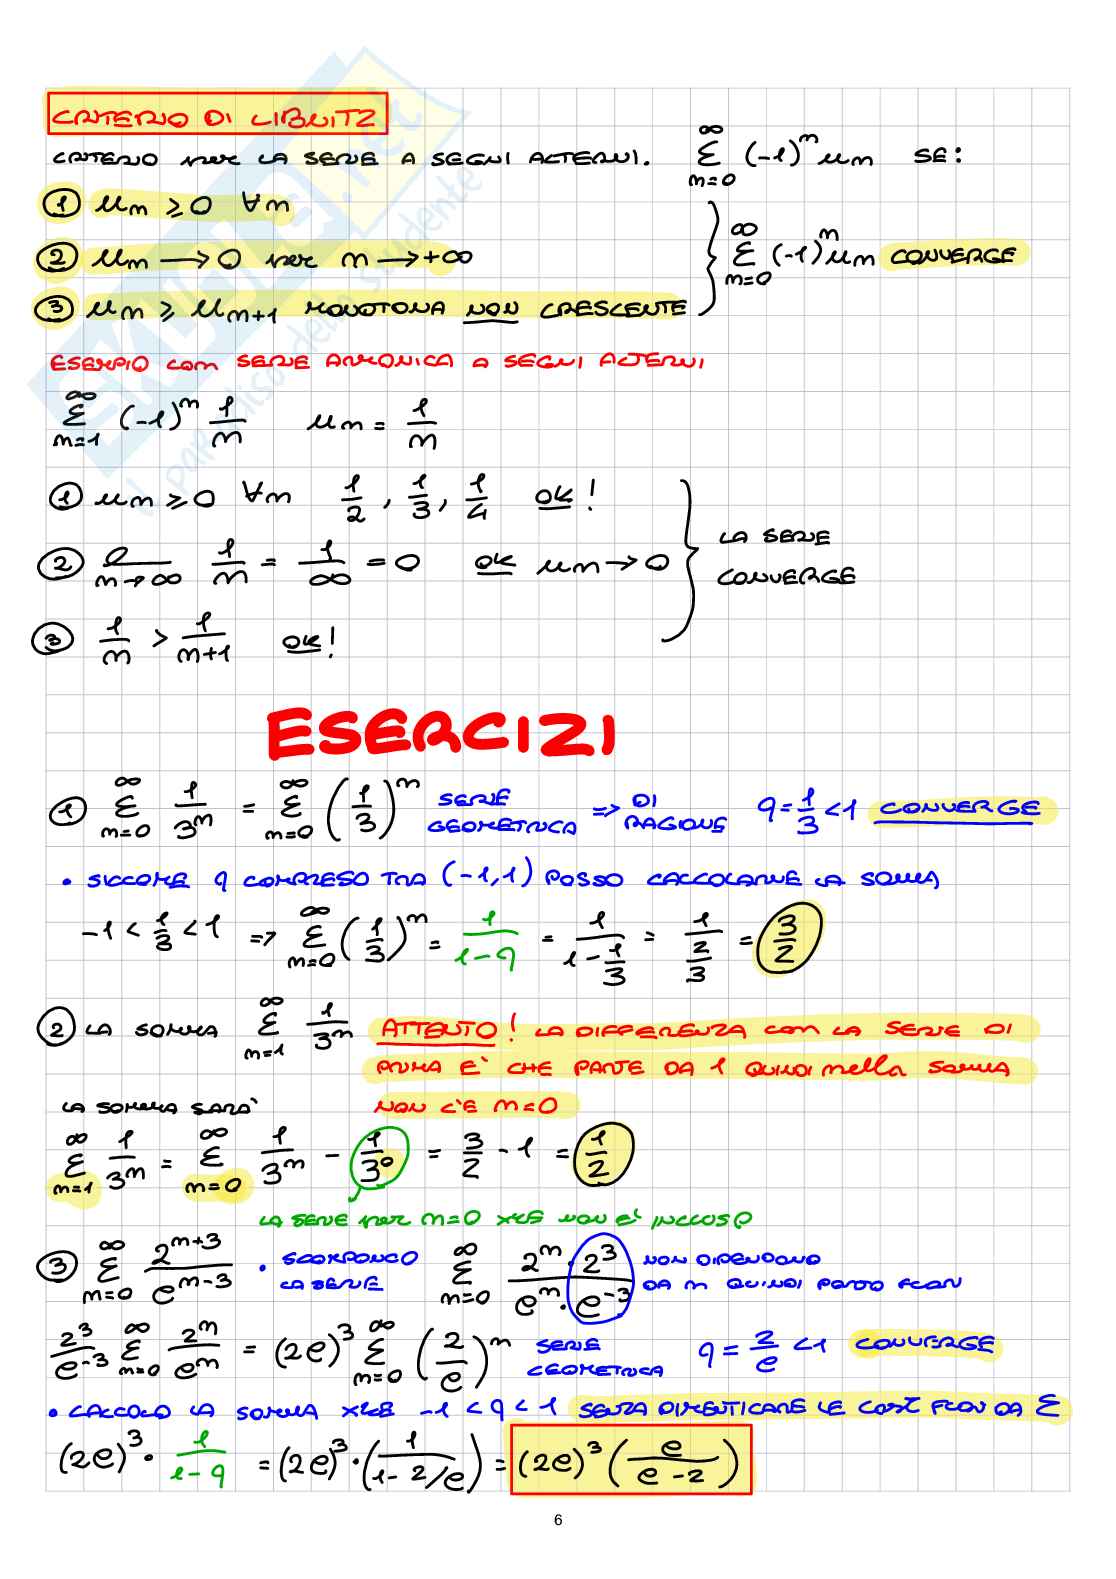 CRITERIO DI LIBNITZ
CRITERIO per LA SERIE A SEGNI ALTERNI. ∞ Σ n=0 (-1)^n un SE:
① un ≥ 0 ∀n
② un → 0 per n → +∞
③ un ≥ un+1 MONOTONA NON CRESCENTE
∞ Σ n=0 (-1)^n un CONVERGE
ESEMPIO con SERIE ARMONICA A SEGNI ALTERNI
∞ Σ n=1 (-1)^n 1/n un = 1/n
① un ≥ 0 ∀n 1/2, 1/3, 1/4 OK!
② ℓ n→∞ 1/n = 1/∞ = 0 OK un → 0
③ 1/n > 1/n+1 OK!
LA SERIE
CONVERGE
ESERCIZI
① ∞ Σ n=0 1/3^n = ∞ Σ n=0 (1/3)^n SERIE GEOMETRICA => DI RAGIONE q = 1/3 < 1 CONVERGE
• SICCOME q COMPRESO TRA (-1,1) POSSO CALCOLARNE LA SOMMA
-1 < 1/3 < 1 => ∞ Σ n=0 (1/3)^n = 1/1-q = 1/1-1/3 = 1/2/3 = 3/2
② LA SOMMA ∞ Σ n=1 1/3^n ATTENTO! LA DIFFERENZA con LA SERIE DI
PRIMA E' CHE PARTE DA 1 QUINDI nella SOMMA
LA SOMMA SARA' NON C'E n=0
∞ Σ n=1 1/3^n = ∞ Σ n=0 1/3^n - 1/3^0 = 3/2 - 1 = 1/2
LA SERIE per n=0 xkE non E' INCLUSO
③ ∞ Σ n=0 2^n+3/e^n-3 • SCOMPONGO LA SERIE ∞ Σ n=0 2^n · 2^3/e^n · e^-3 NON DIPENDONO DA n QUINDI PORTO FUORI
2^3/e^-3 ∞ Σ n=0 2^n/e^n = (2e)^3 ∞ Σ n=0 (2/e)^n SERIE GEOMETRICA q = 2/e < 1 CONVERGE
• CALCOLO LA SOMMA xkE -1 < q < 1 SENZA DIMENTICARE LE COST FUORI DA Σ
(2e)^3 · 1/1-q = (2e)^3 · (1/1-2/e) = (2e)^3 (e/e-2)
6